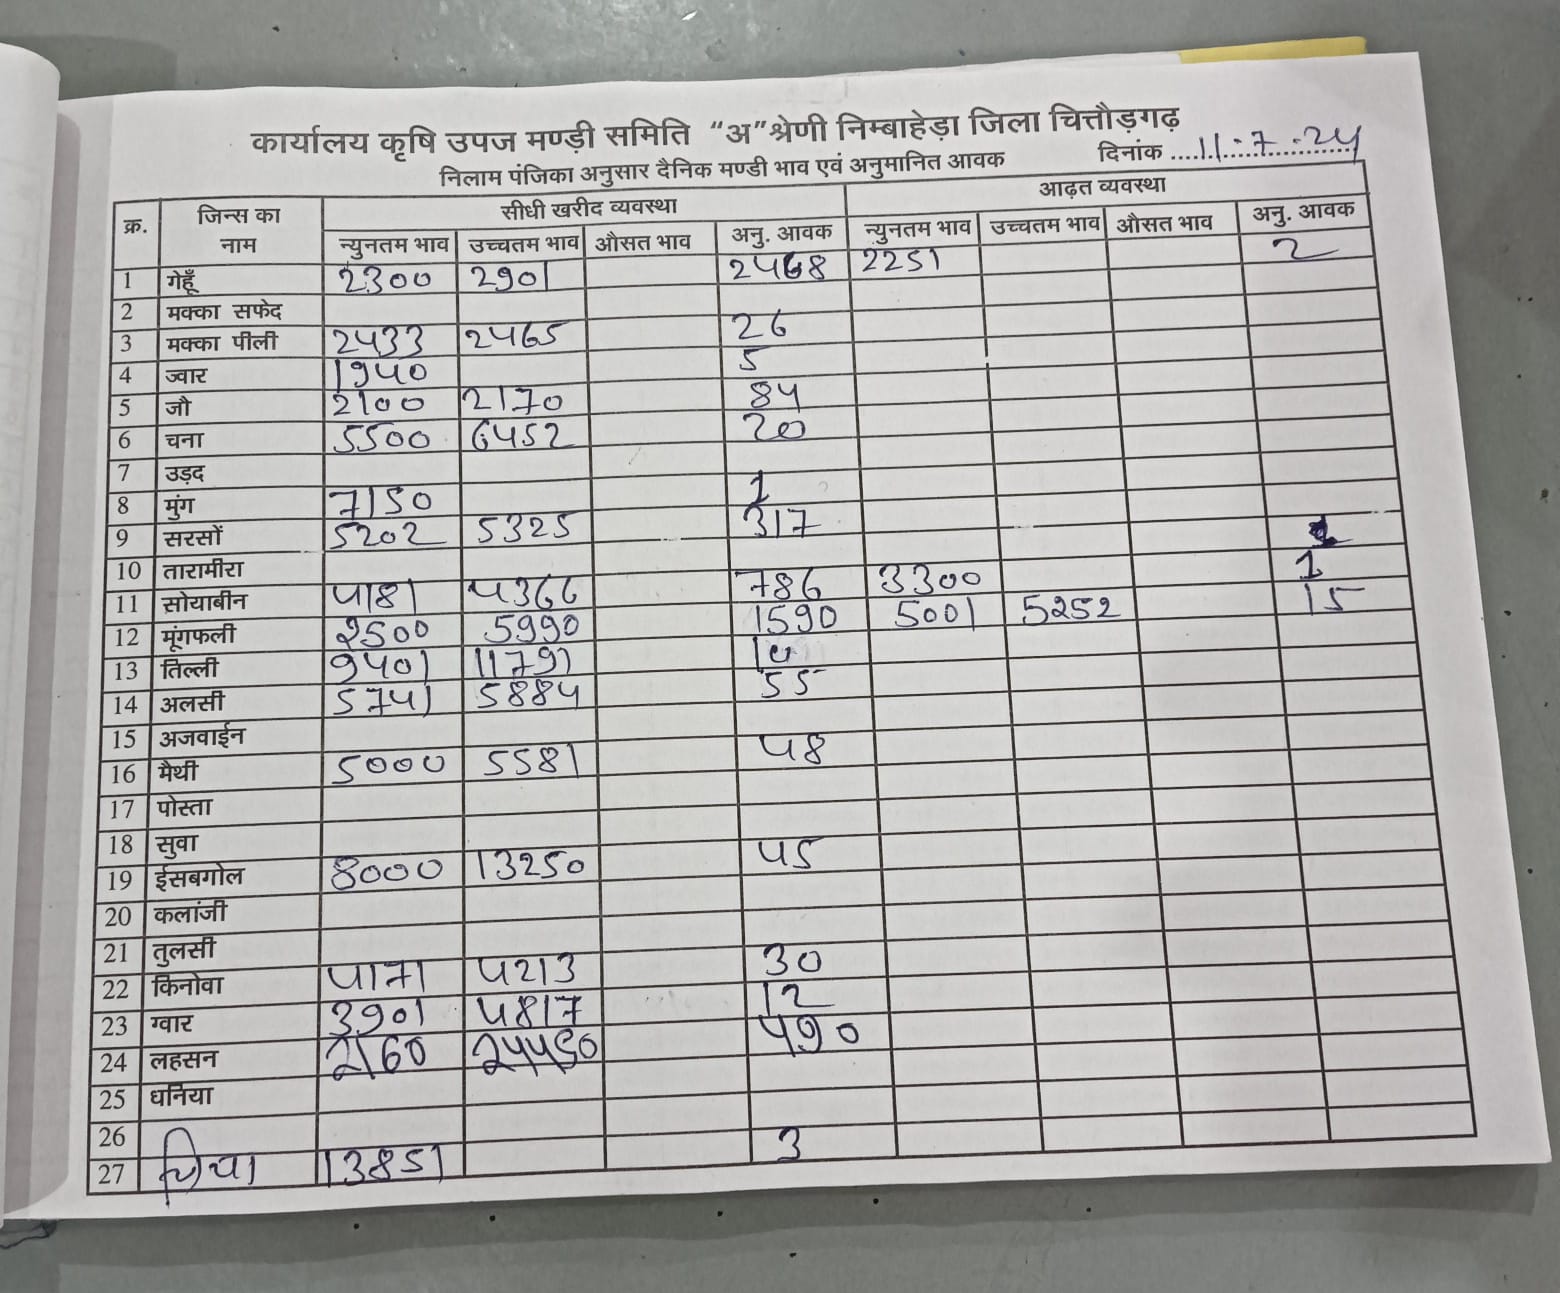 कार्यालय कृषि उपज मण्डी समिति "अ" श्रेणी निम्बाहेड़ा जिला चित्तौड़गढ़
निलाम पंजिका अनुसार दैनिक मण्डी भाव एवं अनुमानित आवक दिनांक 11-7-24
क्र. जिन्स का नाम सीधी खरीद व्यवस्था आढ़त व्यवस्था
न्युनतम भाव उच्चतम भाव औसत भाव अनु. आवक न्युनतम भाव उच्चतम भाव औसत भाव अनु. आवक
1 गेहूँ 2300 2901 2468 2251 2
2 मक्का सफेद
3 मक्का पीली 2433 2465 26
4 ज्वार 1940 5
5 जौ 2100 2170 84
6 चना 5500 6452 20
7 उड़द
8 मुंग 7150 1
9 सरसों 5202 5325 317
10 तारामीरा
11 सोयाबीन 4181 4366 786 3300 1
12 मूंगफली 2500 5990 1590 5001 5252 15
13 तिल्ली 9401 11791 14
14 अलसी 5741 5884 55
15 अजवाईन
16 मैथी 5000 5581 48
17 पोस्ता
18 सुवा
19 ईसबगोल 8000 13250 45
20 कलांजी
21 तुलसी
22 किनोवा 4171 4213 30
23 ग्वार 3901 4817 12
24 लहसन 2160 24450 490
25 धनिया
26
27 चिया 13851 3